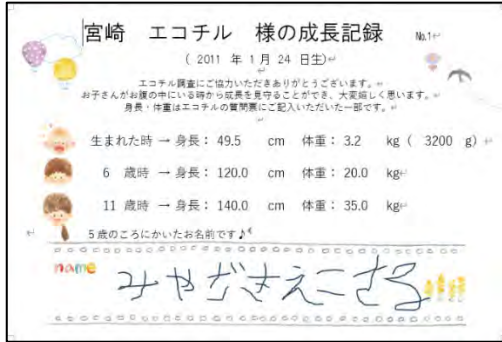 宮崎 エコチル 様の成長記録 No.1
( 2011 年 1 月 24 日生)
エコチル調査にご協力いただきありがとうございます。
お子さんがお腹の中にいる時から成長を見守ることができ、大変嬉しく思います。
身長・体重はエコチルの質問票にご記入いただいた一部です。
生まれた時 → 身長: 49.5 cm 体重: 3.2 kg ( 3200 g)
6 歳時 → 身長: 120.0 cm 体重: 20.0 kg
11 歳時 → 身長: 140.0 cm 体重: 35.0 kg
5歳のころにかいたお名前です♪
name
みやざきえこちる